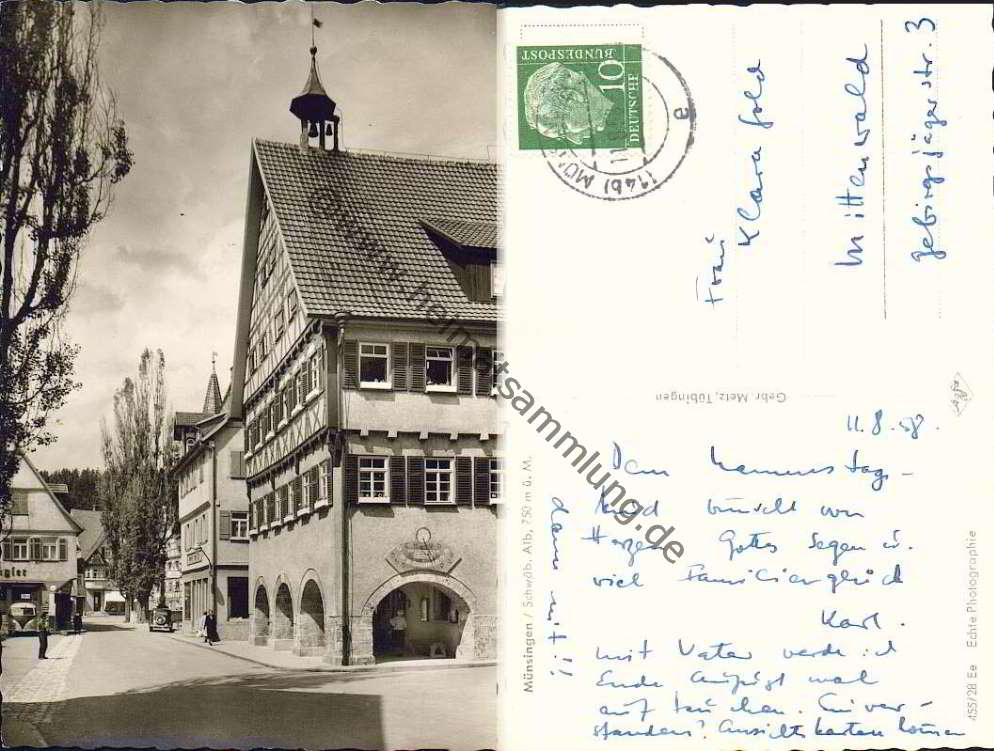 gler
www.heimatsammlung.de
DEUTSCHE
BUNDESPOST
10
(14b) MÜN
e
Frau
Klara Gold
Mittenwald
Gebirgsjägerstr. 3
Gebr. Metz, Tübingen
Münsingen / Schwäb. Alb, 750 m ü. M.
455/28 Ee Echte Photographie
11.8.58.
Dem Namenstag-
kind wünscht von
Herzen Gottes Segen u.
viel Familienglück
Karl.
Mit Vater werde ich
Ende August mal
auftauchen. Einver-
standen? Ansichtskarten kommen
dann mit!!